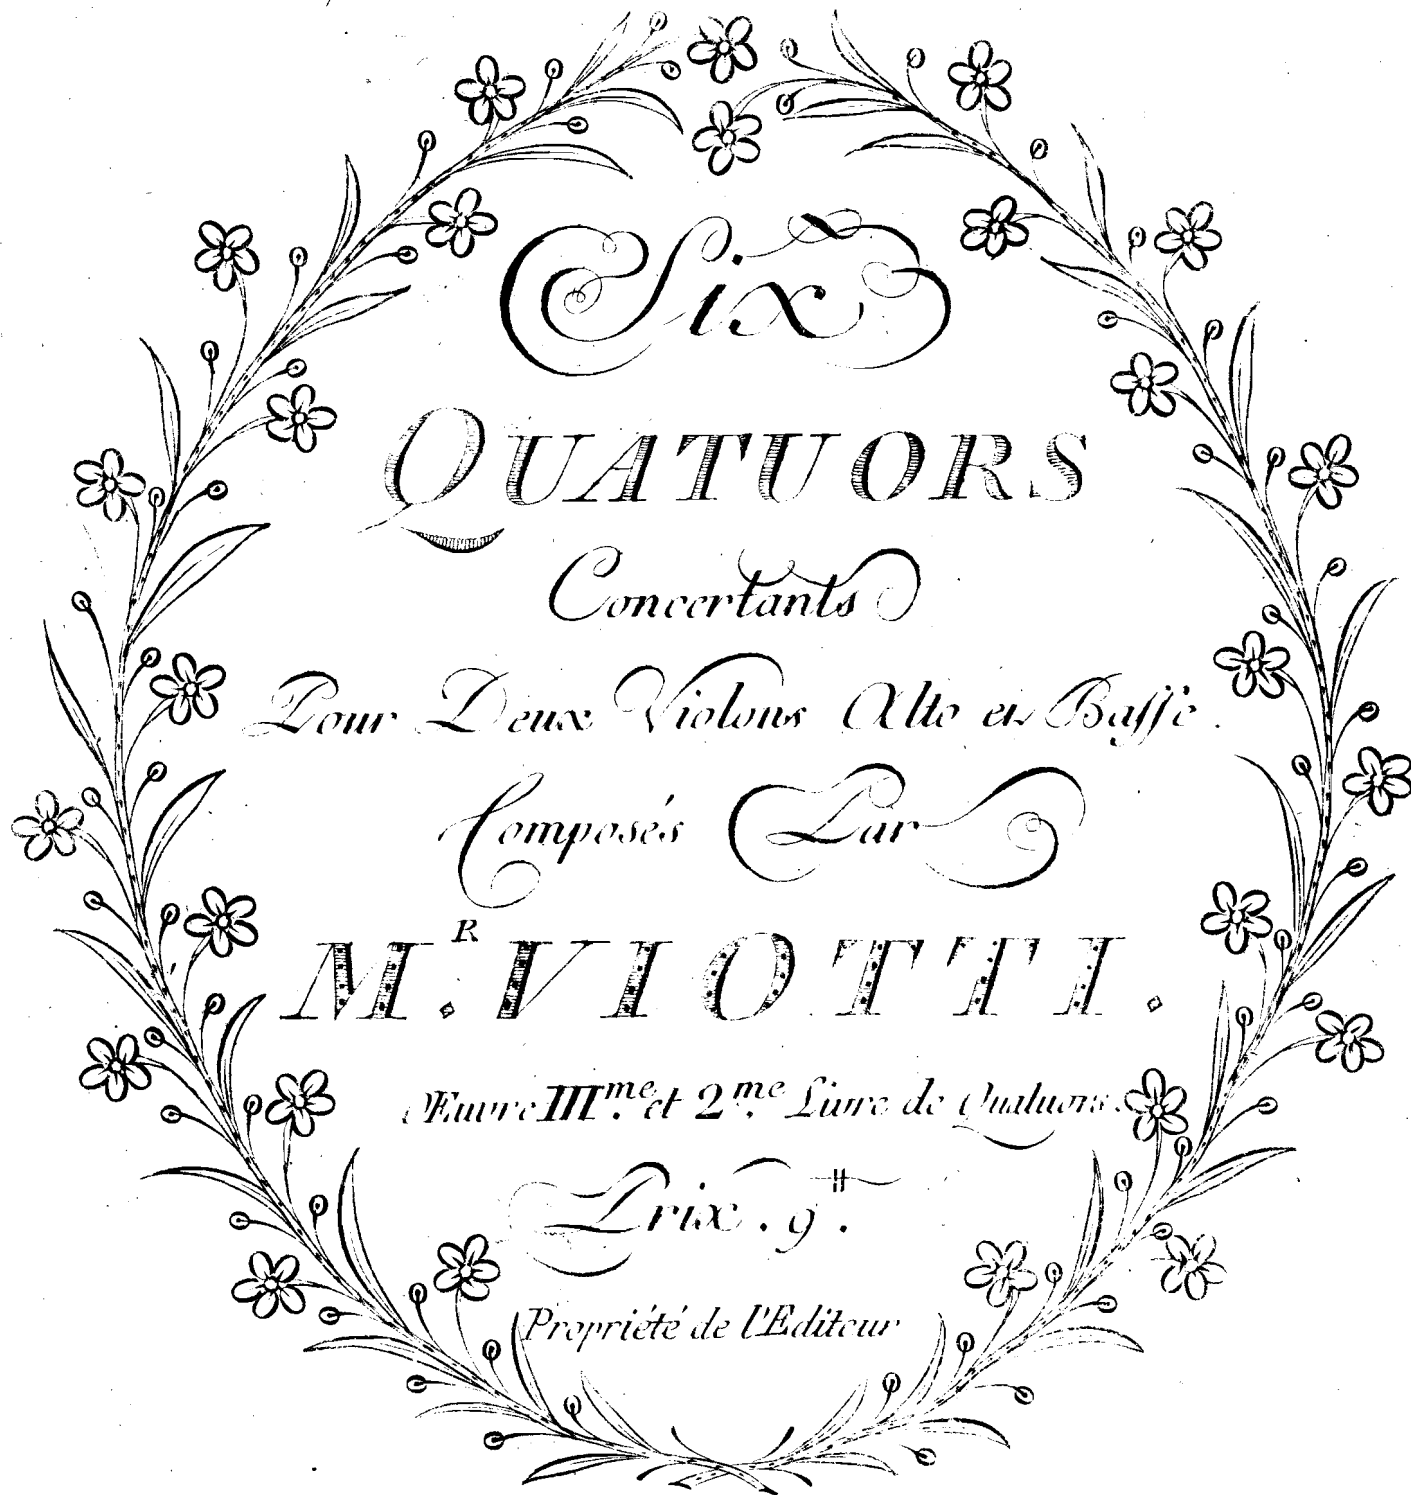 Six
QUATUORS
Concertants
Pour Deux Violons Alto et Basse.
Composés Par
M.R VIOTTI.
Œuvre III.me et 2.me Livre de Quatuors.
Prix. 9.tt
Propriété de l'Editeur